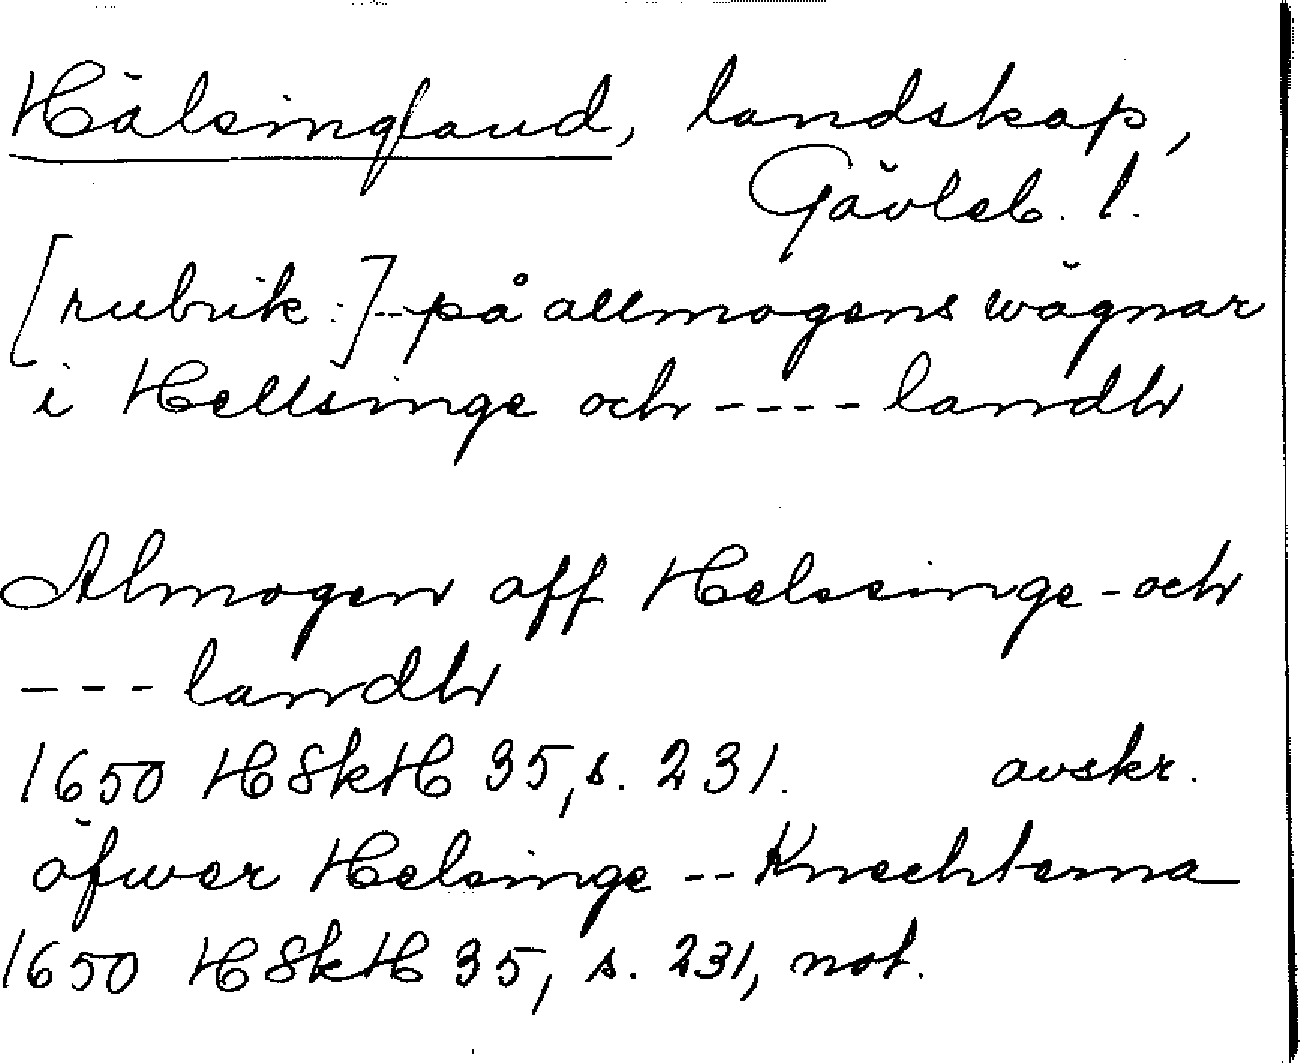 Hälsingland, landskap,
Gävleb. l.
[rubrik:]--på allmogens wägnar
i Hellsinge och ---- landh
Almogen aff Helssinge- och
--- landh
1650 HSkH 35, s. 231. avskr.
öfwer Helsinge -- Knechterna
1650 HSkH 35, s. 231, not.